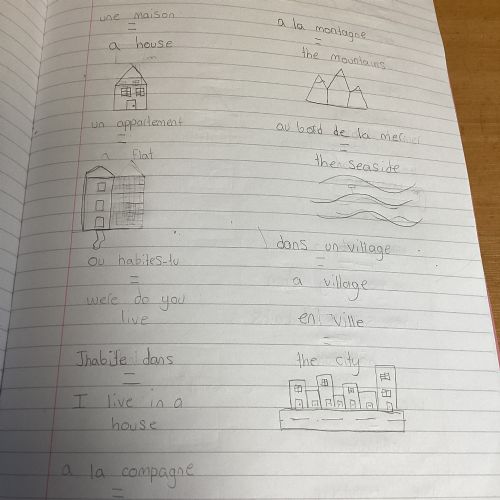 une maison
=
a house
un appartement
=
a flat
ou habites-tu
=
were do you
live
Jhabite dans
=
I live in a
house
a la compagne
=
a la montagne
=
the mountains
au bord de la mer
=
the seaside
dans un village
=
a village
en ville
=
the city